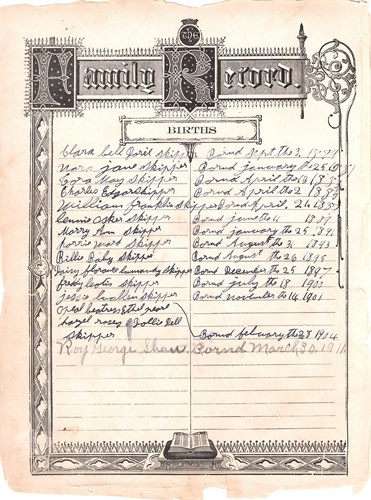 The
Family Record.
BIRTHS
Clara bell Skipper Bornd Sept the 3
Nora jane Skipper Bornd january the 25
Cora May Skipper Bornd April the
Charles Edgar Skipper Bornd April the 2
William franklin Skipper Bornd April, 26
Lennie Skipper Bornd june the 11
Marry Ann Skipper Bornd january the 25 1891
Ward Skipper Bornd August the 31 1893
Billie Baby Skipper Bornd August the 26 1895
florance Skipper Bornd December the 25 1897
freddy Skipper Bornd july the 18 1900
jessie Skipper Bornd november the 14 1901
Opal
hazel Skipper Bornd february the 28 1904
Roy George Shaw. Bornd March 30, 1911